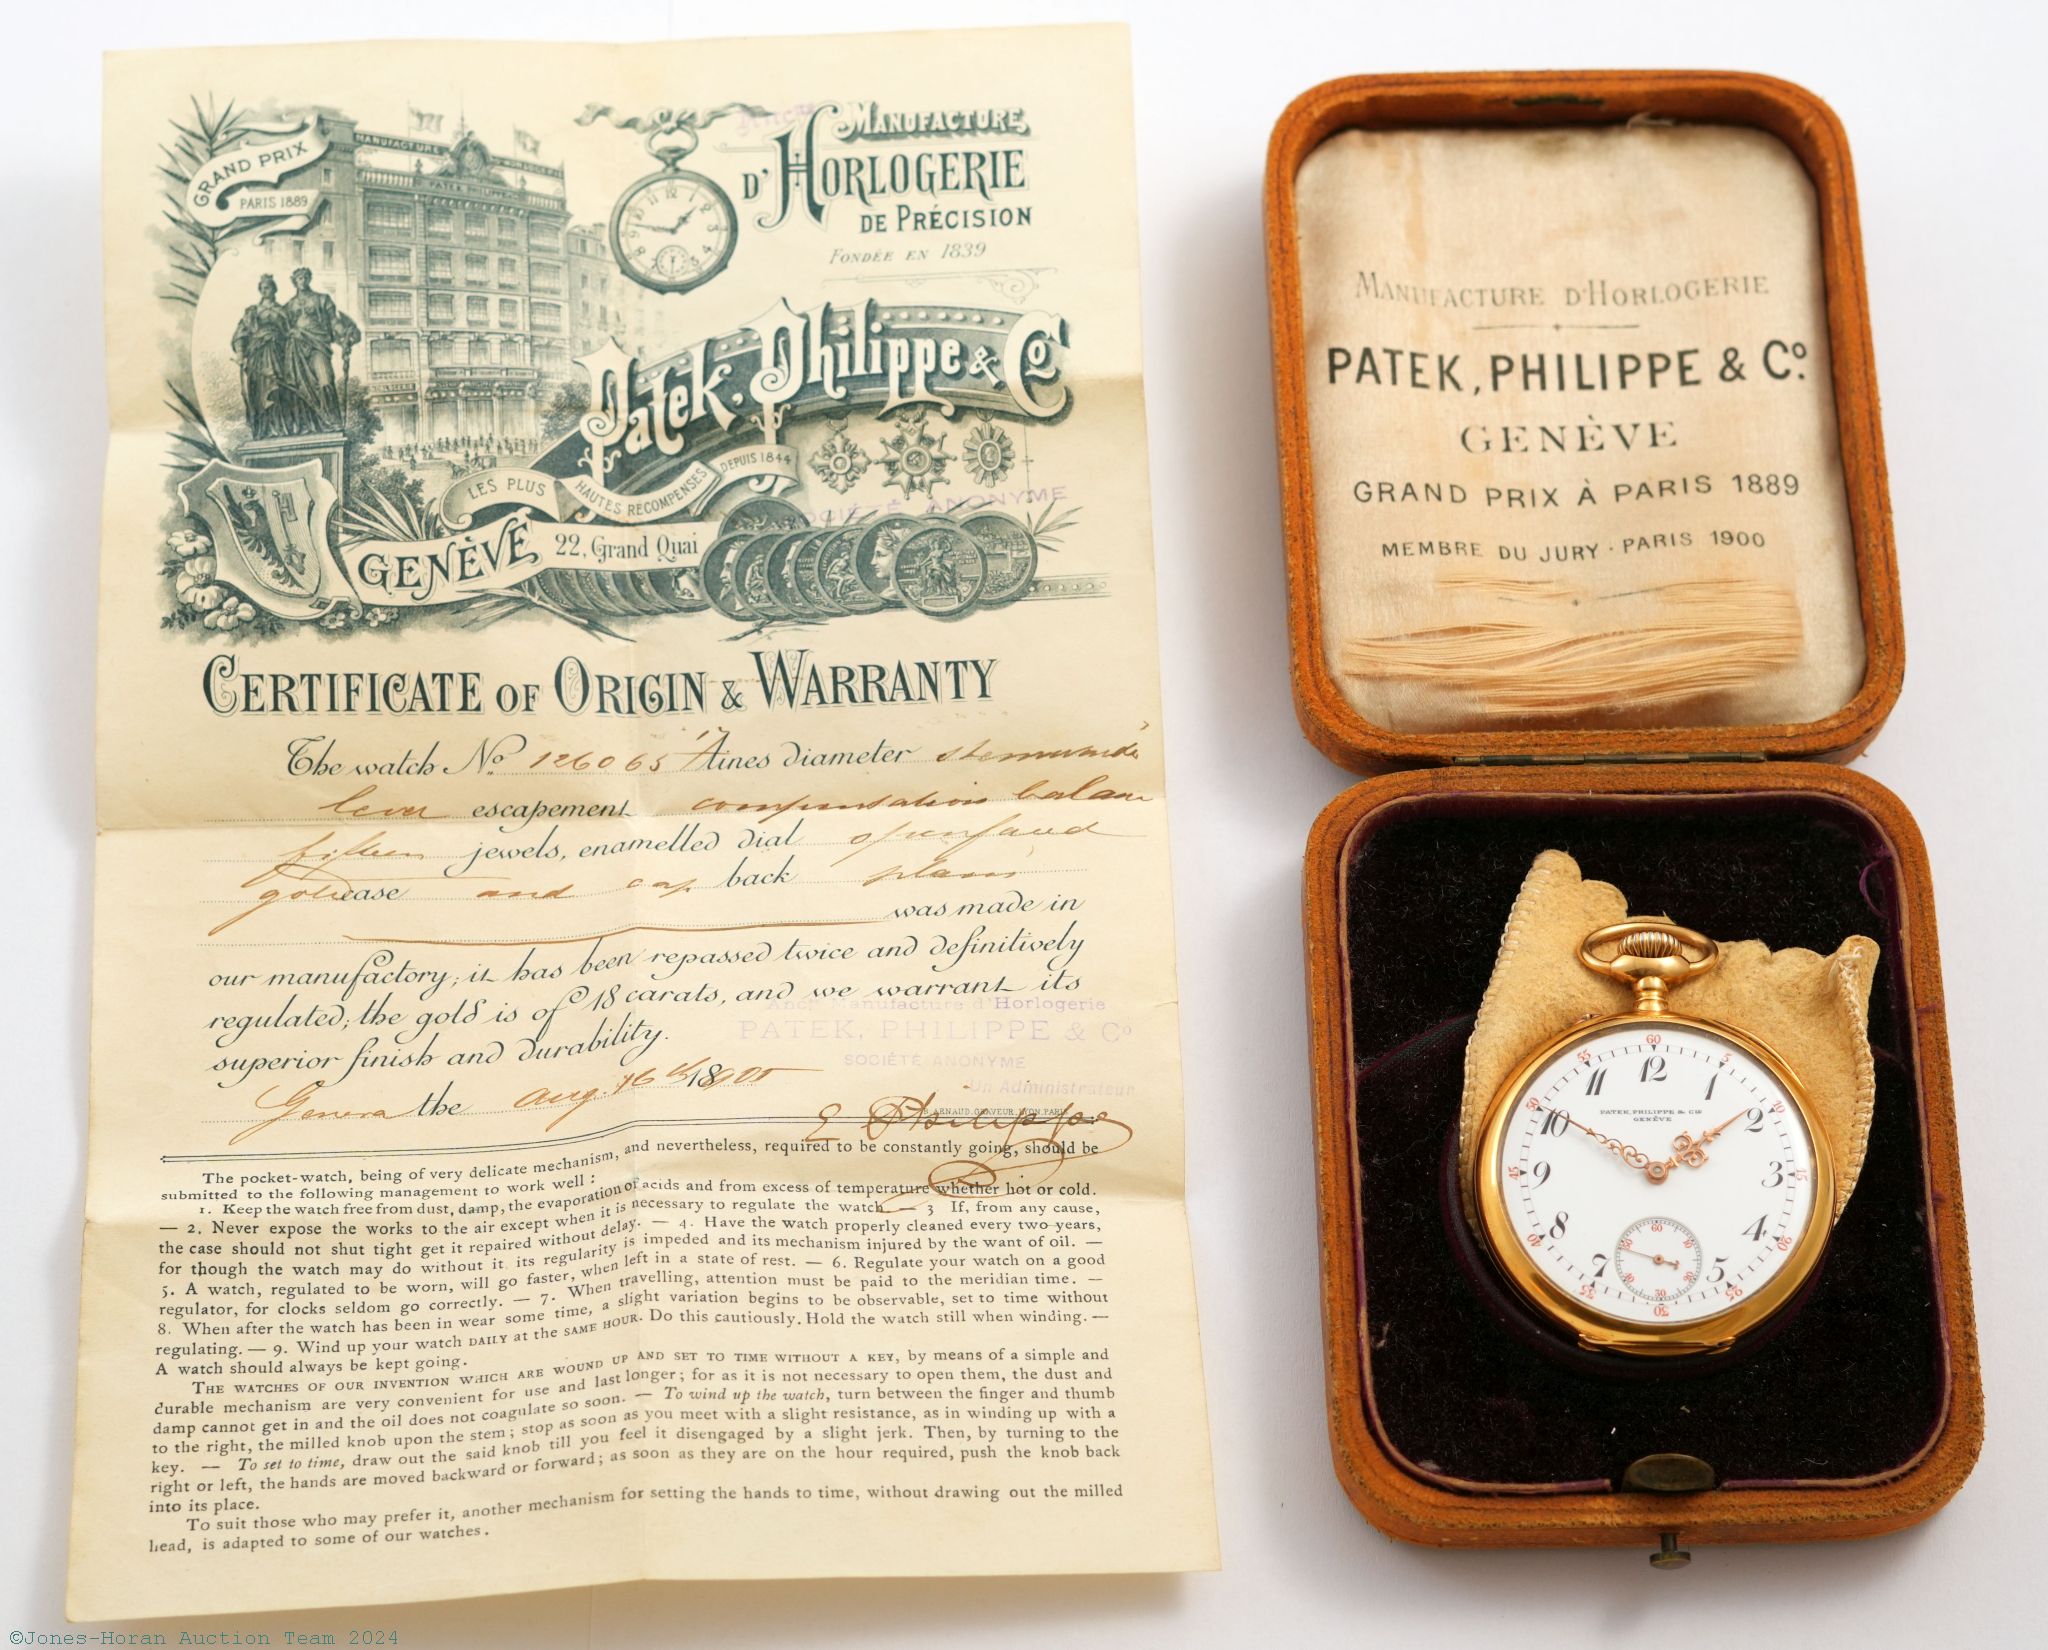 GRAND PRIX
PARIS 1889
MANUFACTURE D'HORLOGERIE
PATEK PHILIPPE
Ancne
MANUFACTURE
D'HORLOGERIE
DE PRÉCISION
FONDÉE EN 1839
Patek, Philippe & Co
LES PLUS HAUTES RECOMPENSES DEPUIS 1844
SOCIÉTÉ ANONYME
GENÈVE 22, Grand Quai
CERTIFICATE OF ORIGIN & WARRANTY
The watch No. 126065 lines diameter stemwinder
lever escapement compensation balance
fifteen jewels, enamelled dial openfaced
gold case and cap back plain
was made in
our manufactory; it has been repassed twice and definitively
regulated; the gold is of 18 carats, and we warrant its
superior finish and durability.
Ancne Manufacture d'Horlogerie
PATEK, PHILIPPE & Co
SOCIÉTÉ ANONYME
Un Administrateur
Geneva the Aug. 16th 18900
B. ARNAUD, GRAVEUR, LYON, PARIS
E Philippe
The pocket-watch, being of very delicate mechanism, and nevertheless, required to be constantly going, should be
submitted to the following management to work well :
1. Keep the watch free from dust, damp, the evaporation of acids and from excess of temperature whether hot or cold.
— 2. Never expose the works to the air except when it is necessary to regulate the watch — 3 If, from any cause,
the case should not shut tight get it repaired without delay. — 4. Have the watch properly cleaned every two years,
for though the watch may do without it its regularity is impeded and its mechanism injured by the want of oil. —
5. A watch, regulated to be worn, will go faster, when left in a state of rest. — 6. Regulate your watch on a good
regulator, for clocks seldom go correctly. — 7. When travelling, attention must be paid to the meridian time. —
8. When after the watch has been in wear some time, a slight variation begins to be observable, set to time without
regulating. — 9. Wind up your watch DAILY at the SAME HOUR. Do this cautiously. Hold the watch still when winding. —
A watch should always be kept going.
THE WATCHES OF OUR INVENTION WHICH ARE WOUND UP AND SET TO TIME WITHOUT A KEY, by means of a simple and
durable mechanism are very convenient for use and last longer; for as it is not necessary to open them, the dust and
damp cannot get in and the oil does not coagulate so soon. — To wind up the watch, turn between the finger and thumb
to the right, the milled knob upon the stem; stop as soon as you meet with a slight resistance, as in winding up with a
key. — To set to time, draw out the said knob till you feel it disengaged by a slight jerk. Then, by turning to the
right or left, the hands are moved backward or forward; as soon as they are on the hour required, push the knob back
into its place.
To suit those who may prefer it, another mechanism for setting the hands to time, without drawing out the milled
head, is adapted to some of our watches.
MANUFACTURE D'HORLOGERIE
PATEK, PHILIPPE & Co.
GENÈVE
GRAND PRIX À PARIS 1889
MEMBRE DU JURY · PARIS 1900
60 5 10 15 20 25 30 35 40 45 50 55
12 1 2 3 4 5 7 8 9 10 11
PATEK, PHILIPPE & CIE
GENÈVE
60 10 20 30 40 50
©Jones-Horan Auction Team 2024